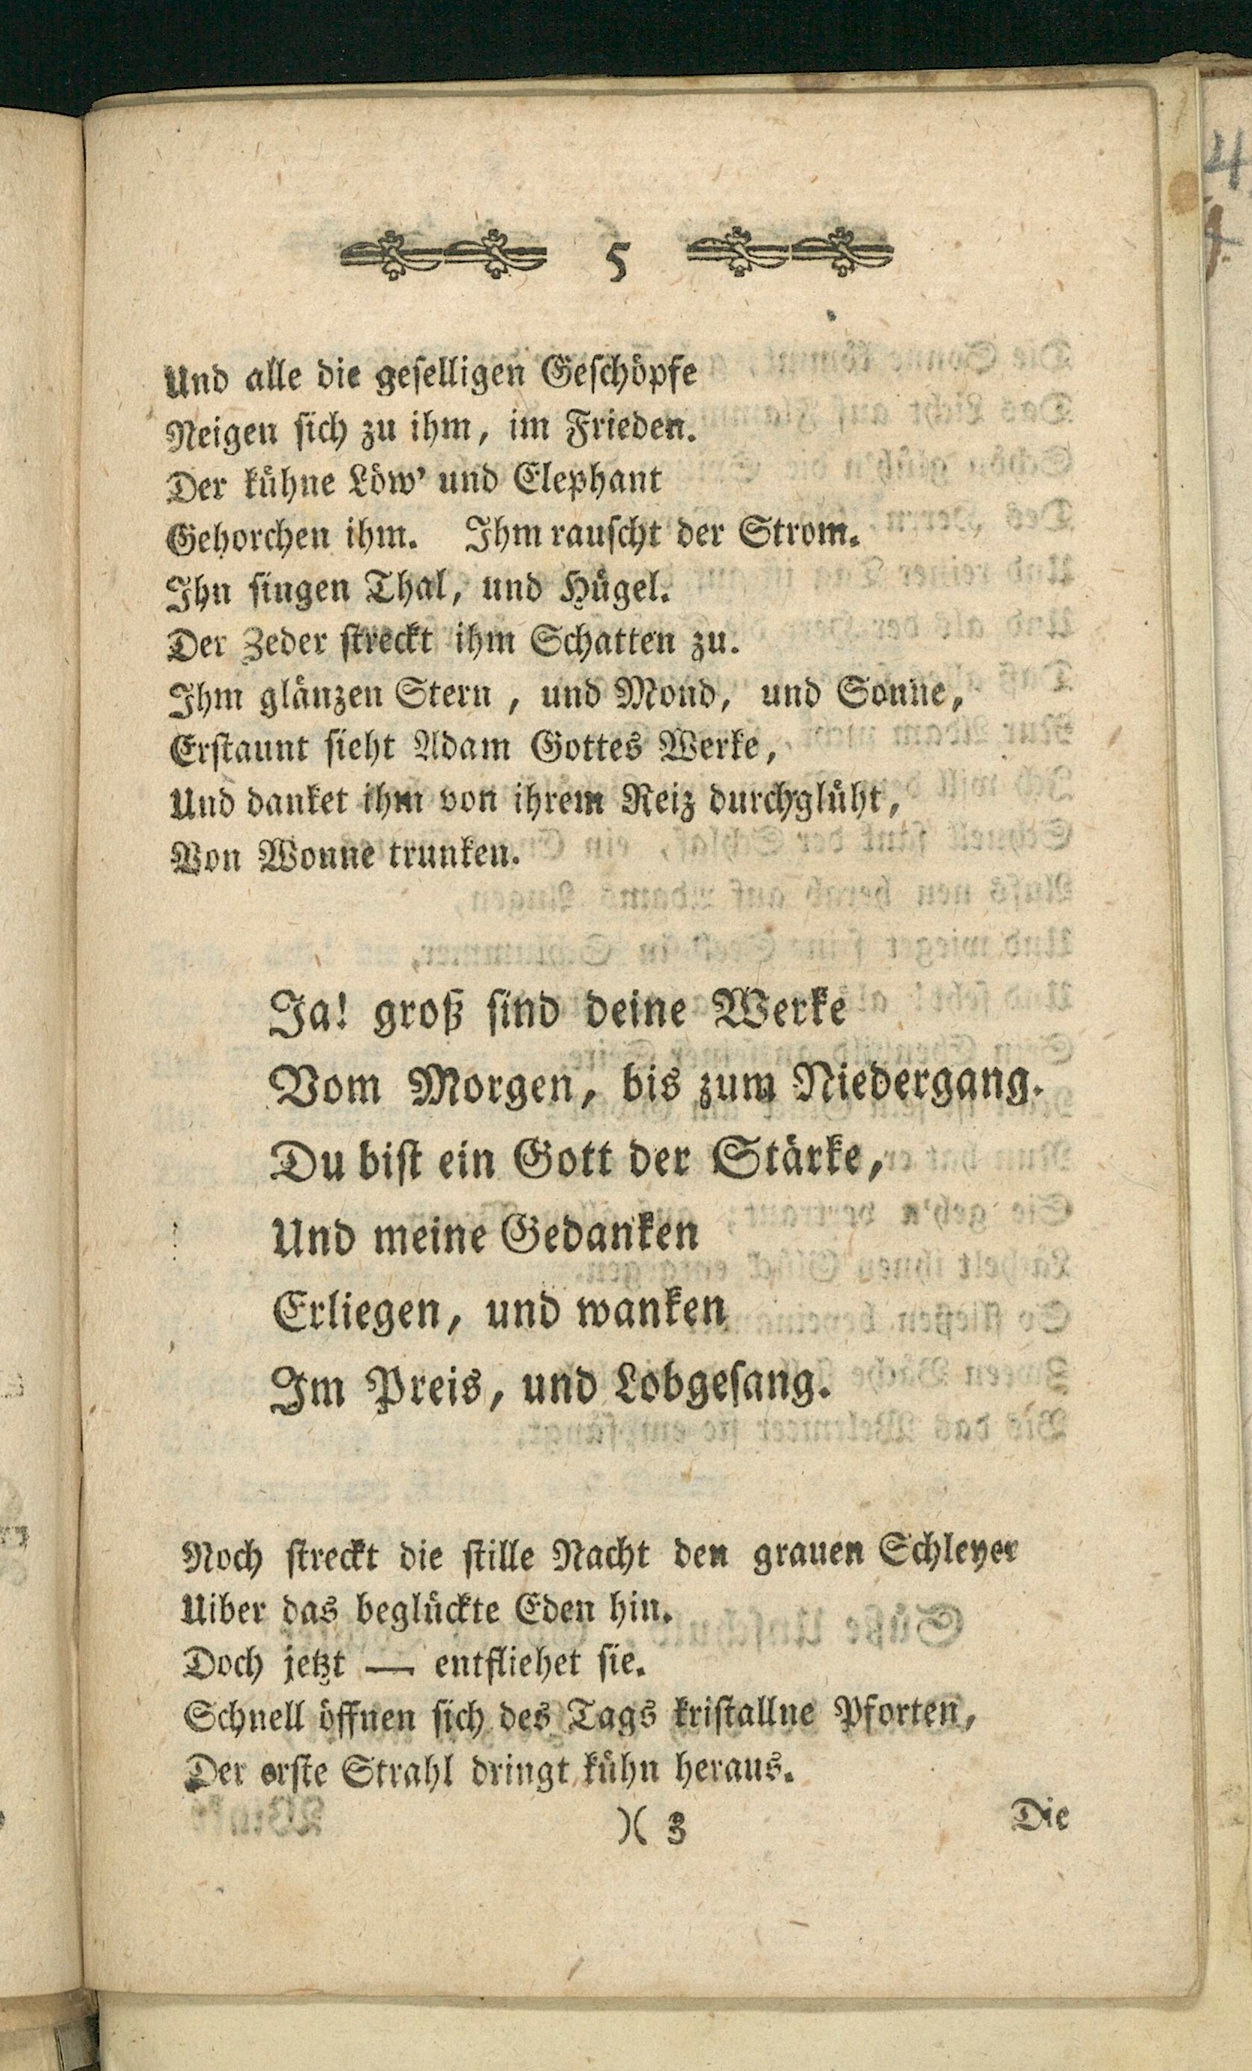 5
Und alle die geselligen Geschöpfe
Neigen sich zu ihm, im Frieden.
Der kühne Löw' und Elephant
Gehorchen ihm. Ihm rauscht der Strom.
Ihn singen Thal, und Hügel.
Der Zeder streckt ihm Schatten zu.
Ihm glänzen Stern, und Mond, und Sonne,
Erstaunt sieht Adam Gottes Werke,
Und danket ihm von ihrem Reiz durchglüht,
Von Wonne trunken.
Ja! groß sind deine Werke
Vom Morgen, bis zum Niedergang.
Du bist ein Gott der Stärke,
Und meine Gedanken
Erliegen, und wanken
Im Preis, und Lobgesang.
Noch streckt die stille Nacht den grauen Schleyer
Uiber das beglückte Eden hin.
Doch jetzt — entfliehet sie.
Schnell öffnen sich des Tags kristallne Pforten,
Der erste Strahl dringt kühn heraus.
)( 3
Die